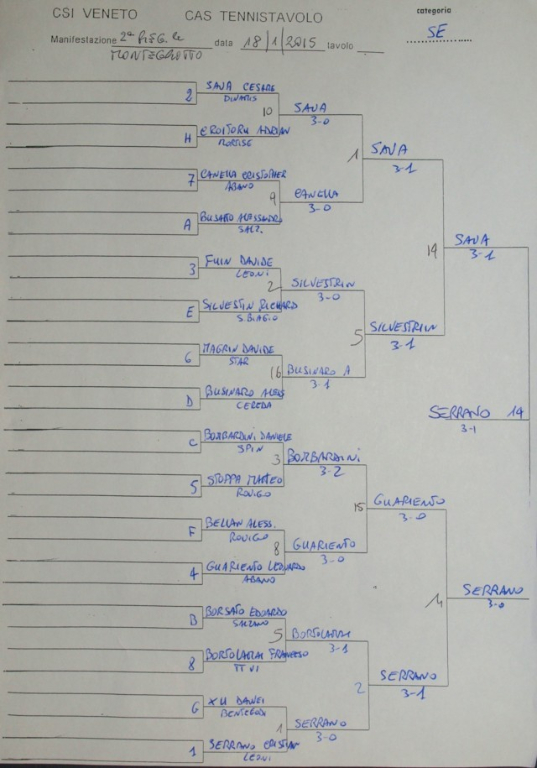 CSI VENETO CAS TENNISTAVOLO categoria
SE
Manifestazione 2ª data 18/1/2015 tavolo
2 SAVA CESARE
10 SAVA
3-0
H CROITORU ADRIAN
MORTISE
1 SAVA
3-1
7 CANELLA CRISTOPHER
ABANO
9 CANELLA
3-0
A BUSATO ALESSANDRO
SALZ.
14 SAVA
3-1
3 FUIN DAVIDE
LEONI
2 SILVESTRIN
3-0
E SILVESTIN RICHARD
S.BIAGIO
5 SILVESTRIN
3-1
6 MAGRIN DAVIDE
STAR
16 BUSINARO A
3-1
D BUSINARO ALESS
CEREDA
SERRANO 14
3-1
C BOMBARDINI DANIELE
SPIN
3 BOMBARDINI
3-2
5 STOPPA MATTEO
ROVIGO
15 GUARIENTO
3-0
F BELLAN ALESS.
ROVIGO
8 GUARIENTO
3-0
4 GUARIENTO LEONARDO
ABANO
SERRANO
3-0
B BORSATO EDOARDO
SALZANO
5 BORTOLAMAI
3-1
8 BORTOLAMAI FRANCESCO
TT VI
2 SERRANO
3-1
G XU DAWEI
1 SERRANO
3-0
1 SERRANO CRISTIAN
LEONI